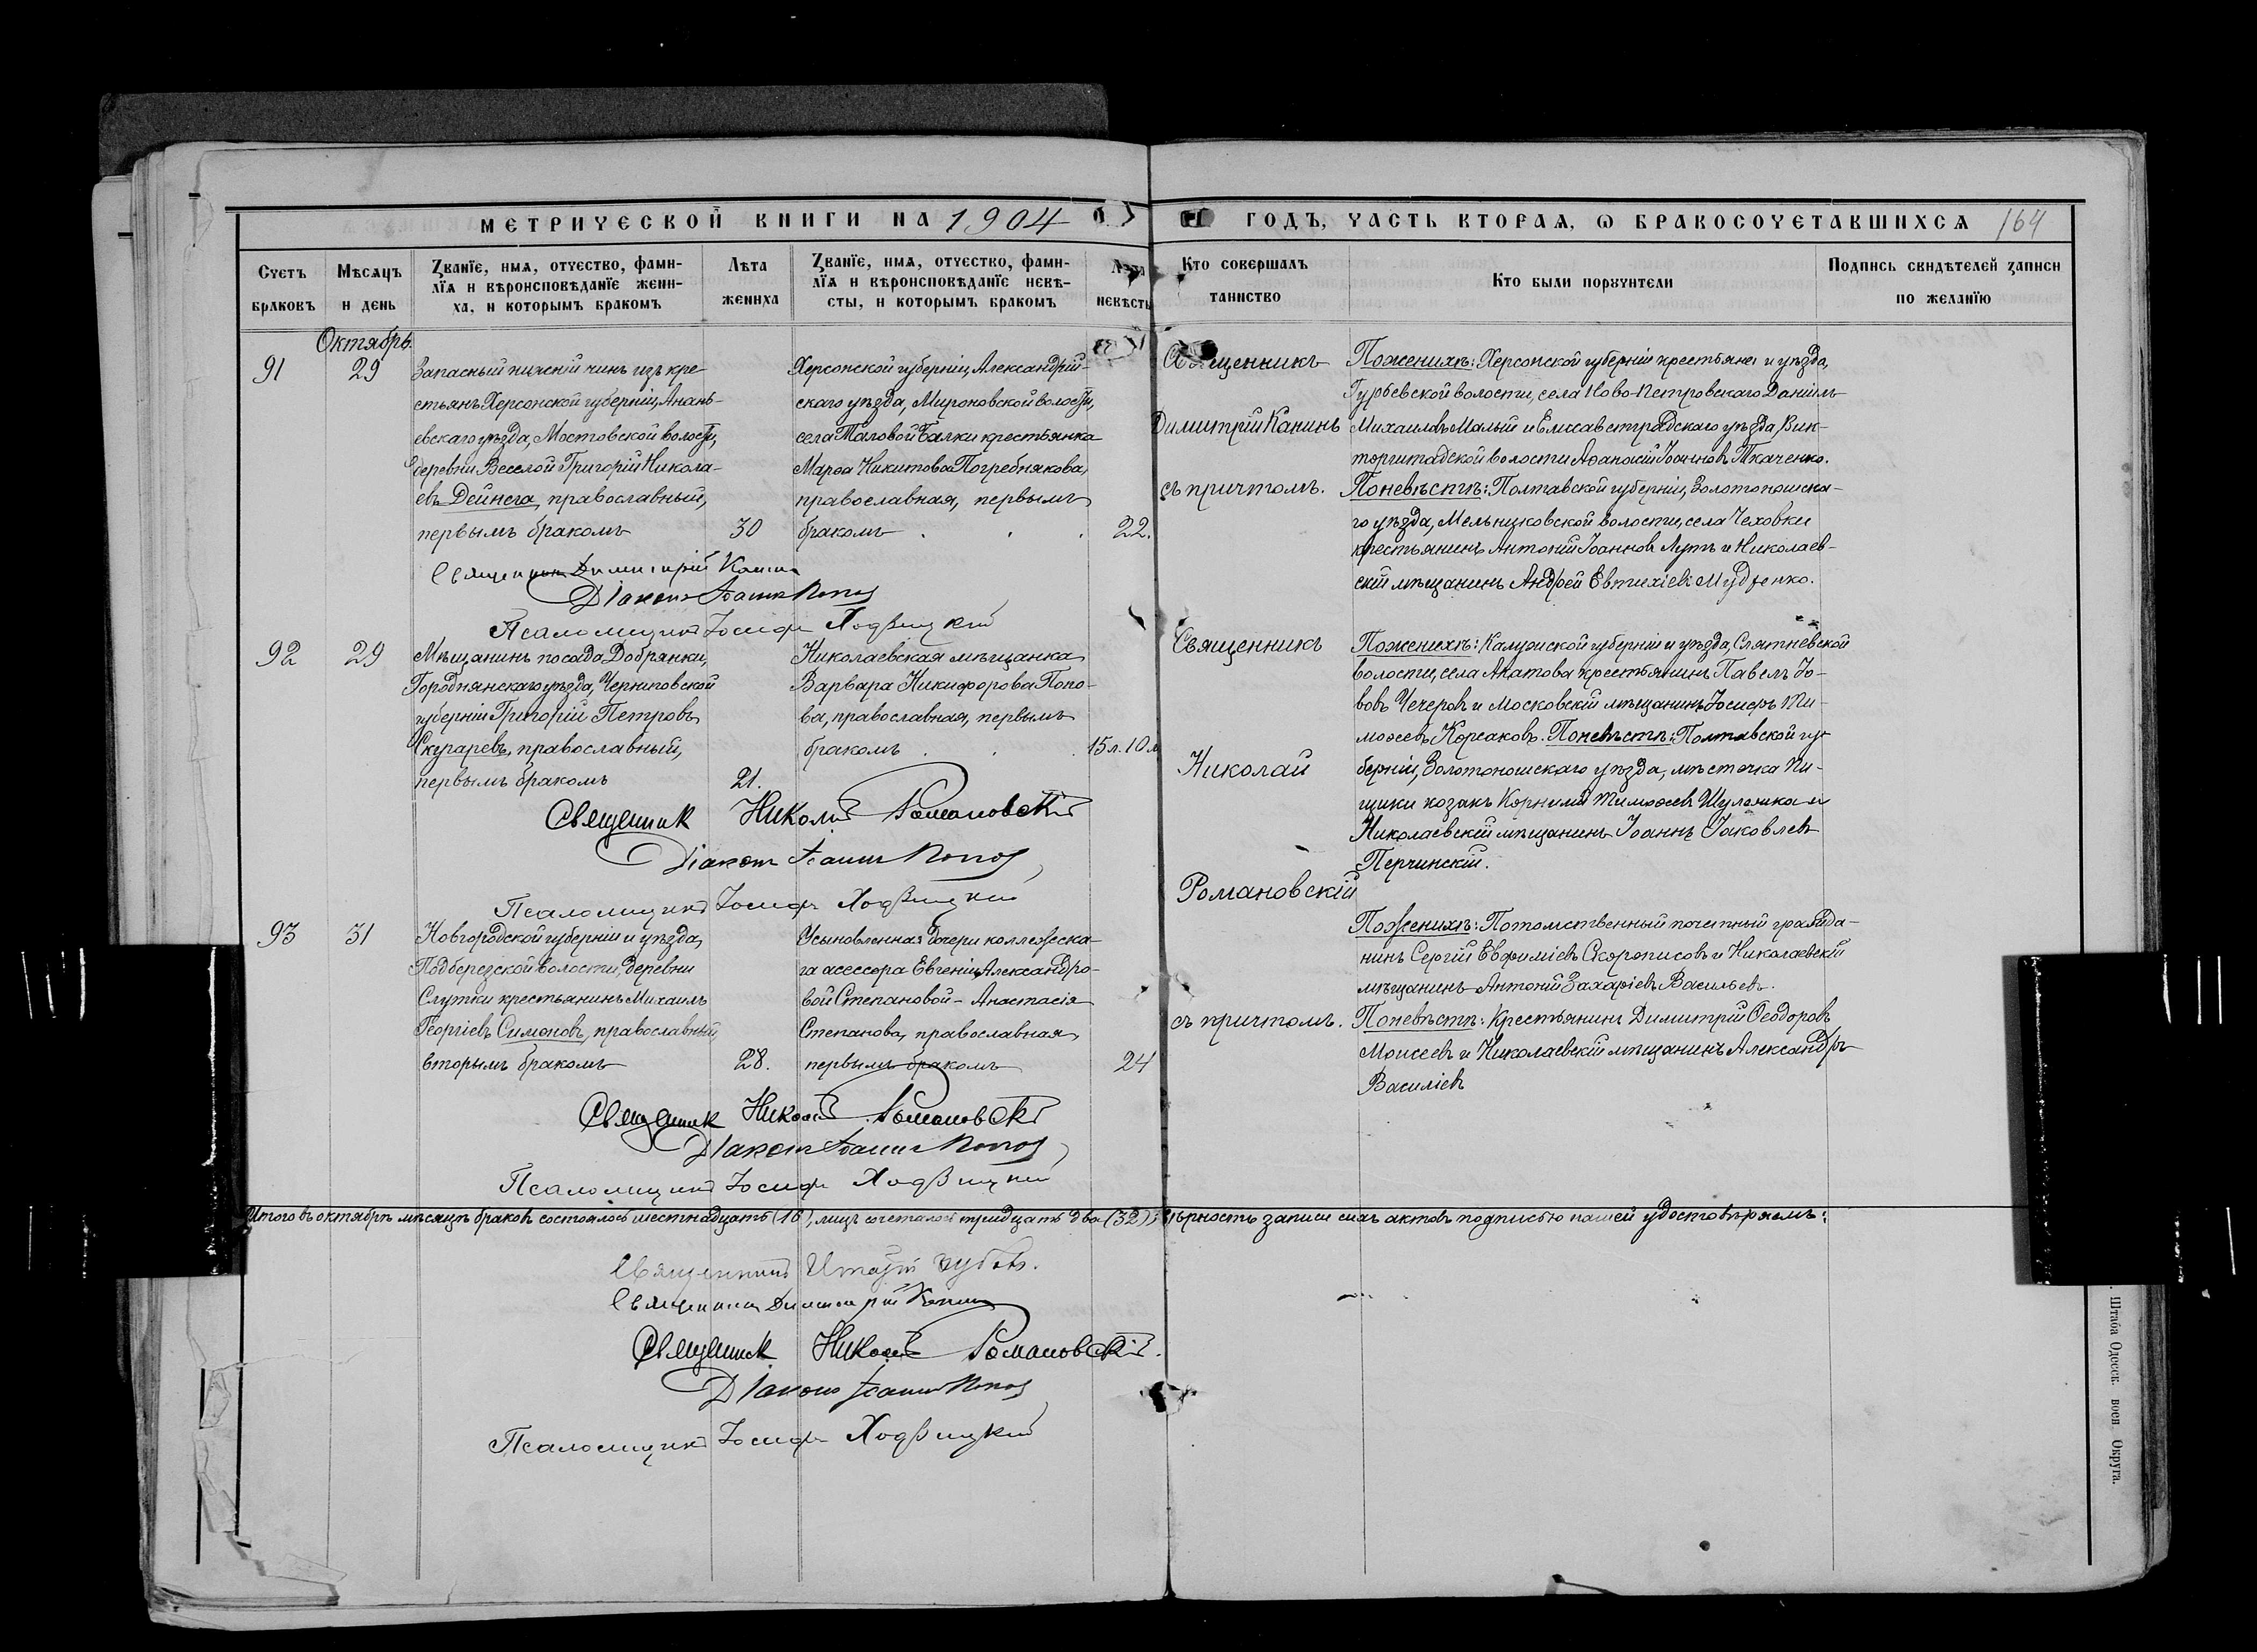 МЕТРИЧЕСКОЙ КНИГИ НА 1904
ГОДЪ, ЧАСТЬ ВТОРАЯ, Ѡ БРАКОСОЧЕТАВШИХСЯ 164
Счетъ браковъ
Мѣсяцъ и день
Званіе, имя, отчество, фами-
лія и вѣроисповѣданіе жени-
ха, и которымъ бракомъ
Лѣта жениха
Званіе, имя, отчество, фами-
лія и вѣроисповѣданіе невѣ-
сты, и которымъ бракомъ
Лѣта невѣсты
Кто совершалъ таинство
Кто были поручители
Подпись свидѣтелей записи по желанію
Октябрь.
91
29
Запасный нижній чинъ изъ кре-
стьянъ Херсонской губерніи, Анань-
евскаго уѣзда, Мостовской волости,
деревни Веселой Григорій Никола-
евъ Дейнега, православный,
первымъ бракомъ
30
Херсонской губерніи, Александрій-
скаго уѣзда, Мироновской волости,
села Таловой Балки крестьянка
Марѳа Никитова Погребнякова,
православная, первымъ
бракомъ
22.
Священникъ
Димитрій Канинъ
съ причтомъ.
Поженихѣ: Херсонской губерніи крестьяне и уѣзда,
Гурьевской волости, села Ново-Петровскаго Даніилъ
Михаиловъ Малый и Елисаветградскаго уѣзда, Вик-
торштадской волости Аѳанасій Іоанновъ Ткаченко.
Поневѣстѣ: Полтавской губерніи, Золотоношска-
го уѣзда, Мельниковской волости, села Чеховки
крестьянинъ Антоній Іоанновъ Лутъ и Николаев-
скій мѣщанинъ Андрей Евтихіевъ
Священникъ Димитрій Канинъ
Діаконъ Іоаннъ
Псаломщикъ Іосифъ Ходзицкій
92
29
Мѣщанинъ посада Добрянки,
Городнянскаго уѣзда, Черниговской
губерніи Григорій Петровъ
Скураревъ, православный,
первымъ бракомъ
21.
Николаевская мѣщанка
Варвара Никифорова Попо-
ва, православная, первымъ
бракомъ
15 л. 10 м
Священникъ
Николай
Романовскій
съ причтомъ.
Поженихѣ: Калужской губерніи и уѣзда, Слядневской
волости, села Акатова крестьянинъ Павелъ Іо-
вовъ Чечеровъ и Московскій мѣщанинъ Іосифъ Ти-
моѳеевъ Корсаковъ. Поневѣстѣ: Полтавской гу-
берніи, Золотоношскаго уѣзда, мѣстечка Пи-
щики козакъ Корнилій Тимоѳеевъ Шуляка и
Николаевскій мѣщанинъ Іоаннъ Іаковлевъ
Перчинскій.
Священник Николай Романовскій
Діаконъ Іоаннъ
Псаломщикъ Іосифъ Ходзицкій
93
31
Новгородской губерніи и уѣзда,
Подберезской волости, деревни
Слутки крестьянинъ Михаилъ
Георгіевъ Симоновъ, православный,
вторымъ бракомъ
28.
Усыновленная дочери коллежска-
га асессора Евгеніи Александро-
вой Степановой - Анастасія
Степанова, православная
первымъ бракомъ
24
Поженихѣ: Потомственный почетный гражда-
нинъ Сергій Евѳиміевъ Скорописовъ и Николаевскій
мѣщанинъ Антоній Захаріевъ Васильевъ.
Поневѣстѣ: крестьянинъ Димитрій Ѳеодоровъ
Моисеевъ и Николаевскій мѣщанинъ Александръ
Василіевъ
Священник Николай Романовскій
Діаконъ Іоаннъ
Псаломщикъ Іосифъ Ходзицкій
Итого въ октябрѣ мѣсяцѣ браковъ состоялось шестнадцать (16), лицъ сочеталось тридцать два (32); вѣрность записи сихъ актовъ подписью нашей удостовѣряемъ:
Священникъ
Священникъ Димитрій Канинъ
Священник Николай Романовскій.
Діаконъ Іоаннъ
Псаломщикъ Іосифъ Ходзицкій
Штаба Одесск. воен Округа.